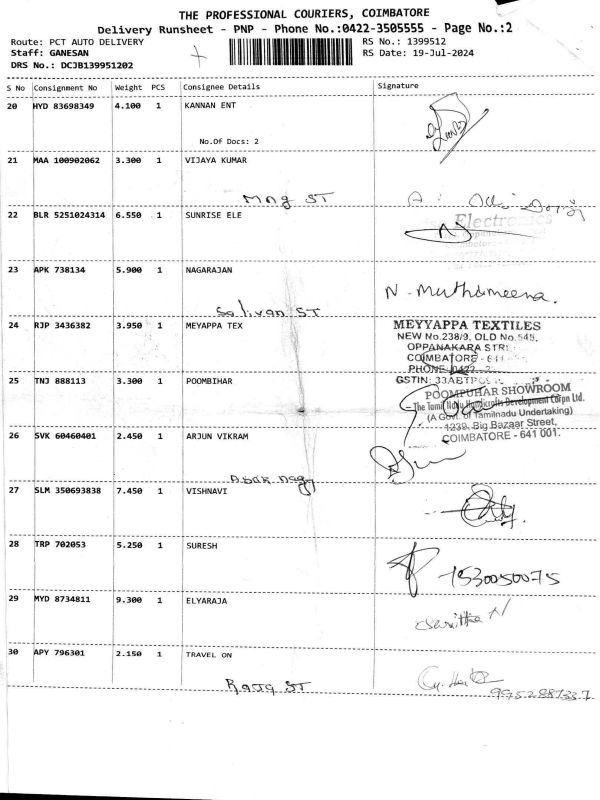 THE PROFESSIONAL COURIERS, COIMBATORE
Delivery Runsheet - PNP - Phone No.:0422-3505555 - Page No.:2
Route: PCT AUTO DELIVERY RS No.: 1399512
Staff: GANESAN RS Date: 19-Jul-2024
DRS No.: DCJB139951202
S No Consignment No Weight PCS Consignee Details Signature
20 HYD 83698349 4.100 1 KANNAN ENT
No.Of Docs: 2
21 MAA 100902062 3.300 1 VIJAYA KUMAR
mng ST
22 BLR 5251024314 6.550 1 SUNRISE ELE
Electronics
23 APK 738134 5.900 1 NAGARAJAN
N. Muthumeena.
Salivan ST
24 RJP 3436382 3.950 1 MEYAPPA TEX
MEYYAPPA TEXTILES
NEW No.238/9, OLD No.545,
OPPANAKARA STR
COIMBATORE - 641
PHONE 0422
25 TNJ 888113 3.300 1 POOMBIHAR
GSTIN: 33AETPG
POOMPUHAR SHOWROOM
The Tamil Nadu Handicrafts Development Corpn Ltd.
(A Govt. of Tamilnadu Undertaking)
1239, Big Bazaar Street,
COIMBATORE - 641 001.
26 SVK 60460401 2.450 1 ARJUN VIKRAM
27 SLM 350693838 7.450 1 VISHNAVI
28 TRP 702053 5.250 1 SURESH
7530050075
29 MYD 8734811 9.300 1 ELYARAJA
30 APY 796301 2.150 1 TRAVEL ON
Raja ST
9952987337